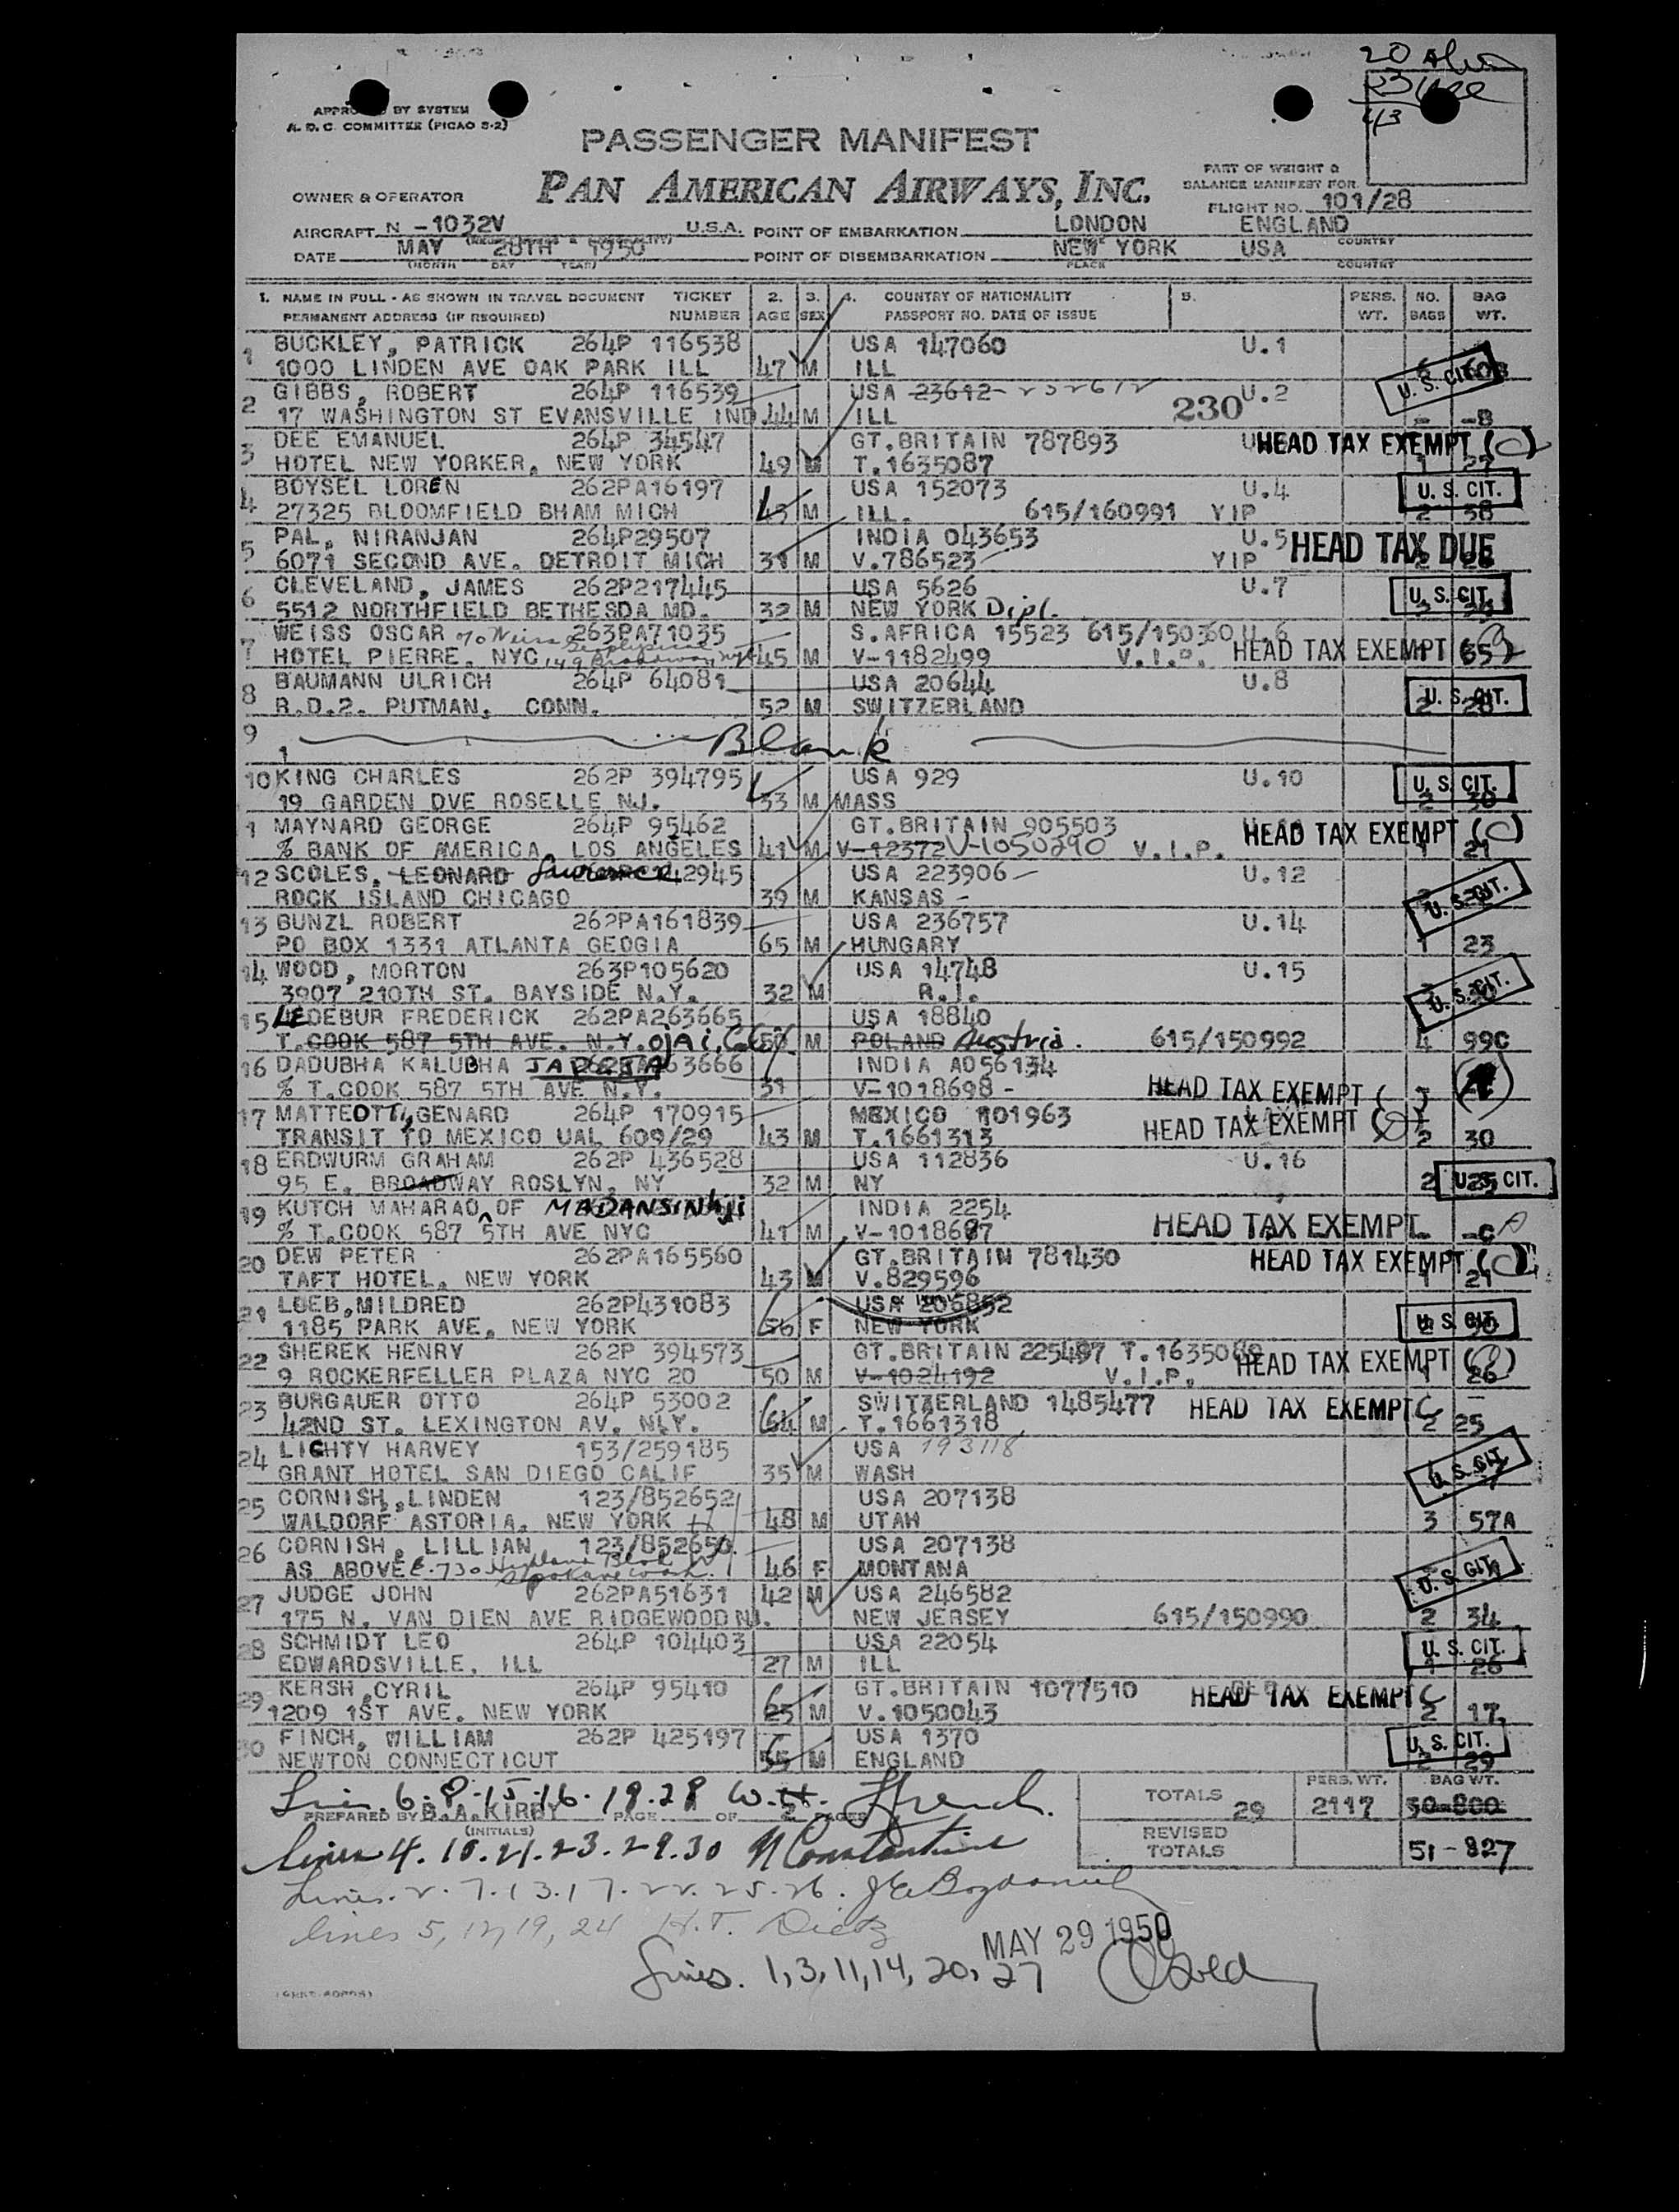 20
23
43
APPROVED BY SYSTEM
A. D. C. COMMITTEE (PICAO S-2)
PASSENGER MANIFEST
PAN AMERICAN AIRWAYS, INC.
PART OF WEIGHT &
BALANCE MANIFEST FOR
FLIGHT NO. 101/28
OWNER & OPERATOR
AIRCRAFT N -1032V U.S.A. POINT OF EMBARKATION LONDON ENGLAND
DATE MAY 28TH 1950 POINT OF DISEMBARKATION NEW YORK USA
(MONTH DAY YEAR) PLACE COUNTRY
1. NAME IN FULL - AS SHOWN IN TRAVEL DOCUMENT TICKET 2. 3. 4. COUNTRY OF NATIONALITY 5. PERS. NO. BAG
PERMANENT ADDRESS (IF REQUIRED) NUMBER AGE SEX PASSPORT NO. DATE OF ISSUE WT. BAGS WT.
1 BUCKLEY, PATRICK 264P 116538 USA 147060 U.1
1000 LINDEN AVE OAK PARK ILL 47 M ILL U. S. CIT.
2 GIBBS, ROBERT 264P 116539 USA 23612 232612 U.2
17 WASHINGTON ST EVANSVILLE IND. 44 M ILL 230 - -B
3 DEE EMANUEL 264P 34547 GT.BRITAIN 787893 HEAD TAX EXEMPT (C)
HOTEL NEW YORKER, NEW YORK 49 M T.1635087 1 27
4 BOYSEL LOREN 262PA16197 USA 152073 U.4 U. S. CIT.
27325 BLOOMFIELD BHAM MICH 43 M ILL. 615/160991 YIP 2 38
5 PAL, NIRANJAN 264P29507 INDIA 043653 U.5 HEAD TAX DUE
6071 SECOND AVE. DETROIT MICH 31 M V.786523 YIP
6 CLEVELAND, JAMES 262P217445 USA 5626 U.7 U. S. CIT.
5512 NORTHFIELD BETHESDA MD. 32 M NEW YORK Dipl.
7 WEISS OSCAR 263PA71035 S.AFRICA 15523 615/150360 U.6
HOTEL PIERRE. NYC 149 Broadway 45 M V-1182499 V.I.P. HEAD TAX EXEMPT
8 BAUMANN ULRICH 264P 64081 USA 20644 U.8
R.D.2. PUTMAN, CONN. 52 M SWITZERLAND U. S. CIT.
9 Blank
10 KING CHARLES 262P 394795 USA 929 U.10 U. S. CIT.
19 GARDEN DVE ROSELLE NJ. 33 M MASS 2 30
1 MAYNARD GEORGE 264P 95462 GT.BRITAIN 905503 HEAD TAX EXEMPT (C)
% BANK OF AMERICA, LOS ANGELES 41 M V-12372 V-1050290 V.I.P. 1 21
12 SCOLES, LEONARD Lawrence 2945 USA 223906 U.12
ROCK ISLAND CHICAGO 39 M KANSAS U. S. CIT.
13 BUNZL ROBERT 262PA161839 USA 236757 U.14
PO BOX 1331 ATLANTA GEOGIA 65 M HUNGARY 1 23
14 WOOD, MORTON 263P105620 USA 14748 U.15
3907 210TH ST. BAYSIDE N.Y. 32 M R.I. U. S. CIT.
15 LEDEBUR FREDERICK 262PA263665 USA 18840
T.COOK 587 5TH AVE. N.Y. Ojai, Calif. 50 M POLAND Austria. 615/150992 4 99C
16 DADUBHA KALUBHA JADEJA 63666 INDIA A056134
% T.COOK 587 5TH AVE N.Y. 31 V-1018698 - HEAD TAX EXEMPT
17 MATTEOTTI, GENARD 264P 170915 MEXICO 101963
TRANSIT TO MEXICO UAL 609/29 43 M T.1661313 HEAD TAX EXEMPT 2 30
18 ERDWURM GRAHAM 262P 436528 USA 112836 U.16
95 E. BROADWAY ROSLYN, NY 32 M NY 2 25 U. S. CIT.
19 KUTCH MAHARAO OF MADANSINHJI INDIA 2254
% T.COOK 587 5TH AVE NYC 41 M V-1018687 HEAD TAX EXEMPT -C
20 DEW PETER 262PA165560 GT.BRITAIN 781430 HEAD TAX EXEMPT (C)
TAFT HOTEL, NEW YORK 43 M V.829596 1 21
21 LOEB, MILDRED 262P431083 USA 206852
1185 PARK AVE, NEW YORK 56 F NEW YORK U. S. CIT.
22 SHEREK HENRY 262P 394573 GT.BRITAIN 225497 T.163508 HEAD TAX EXEMPT
9 ROCKERFELLER PLAZA NYC 20 50 M V-1024192 V.I.P. 1 26
23 BURGAUER OTTO 264P 53002 SWITZERLAND 1485477 HEAD TAX EXEMPT C
42ND ST. LEXINGTON AV. N.Y. 64 M T.1661318 2 25
24 LIGHTY HARVEY 153/259185 USA 193118
GRANT HOTEL SAN DIEGO CALIF 35 M WASH U. S. CIT.
25 CORNISH, LINDEN 123/852652 USA 207138
WALDORF ASTORIA, NEW YORK 48 M UTAH 3 57A
26 CORNISH, LILLIAN 123/852650 USA 207138
AS ABOVE E. 730 Highland Blvd Spokane Wash. 46 F MONTANA U. S. CIT.
27 JUDGE JOHN 262PA51631 42 M USA 246582
175 N. VAN DIEN AVE RIDGEWOOD NJ. NEW JERSEY 615/150990 2 34
28 SCHMIDT LEO 264P 104403 USA 22054 U. S. CIT.
EDWARDSVILLE, ILL 27 M ILL 1 26
29 KERSH, CYRIL 264P 95410 GT.BRITAIN 1077510 HEAD TAX EXEMPT C
1209 1ST AVE. NEW YORK 25 M V.1050043 2 17
30 FINCH, WILLIAM 262P 425197 USA 1370 U. S. CIT.
NEWTON CONNECTICUT 55 M ENGLAND 2 29
Lines 6.8.15.16.18.28 W.H. French.
PREPARED BY B.A.KIRBY PAGE OF 2 PAGES
(INITIALS)
TOTALS 29 PERS. WT. 2117 BAG WT. 50-800
REVISED TOTALS 51-827
Lines 4.10.21.23.29.30 N Constantine
Lines. 2.7.13.17.22.25.26.
lines 5, 12, 19, 24 H.T. Dietz
MAY 29 1950
Lines. 1, 3, 11, 14, 20, 27